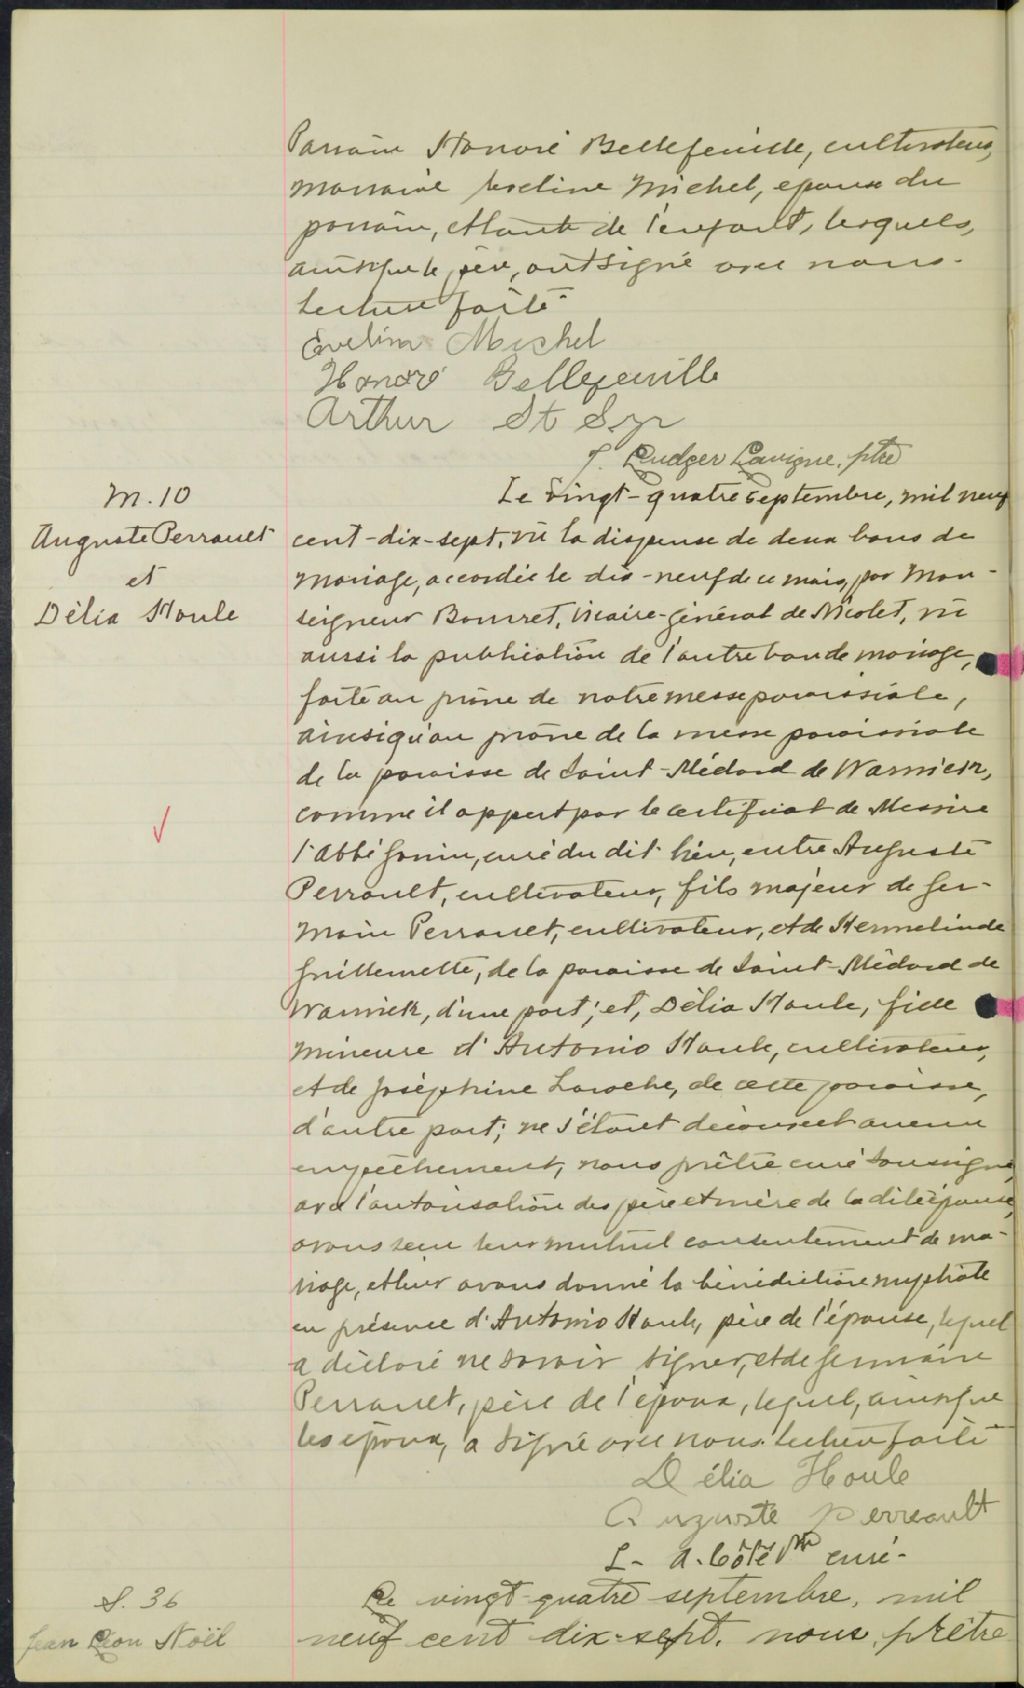 Parrain Honoré Bellefeuille, cultivateur,
marraine Eveline Michel, épouse du
parrain, et tante de l'enfant, lesquels,
ainsi que le père, ont signé avec nous.
Lecture faite.
Evelina Michel
Honoré Bellefeuille
Arthur St Syr
J. Ludger Lavigne, ptre
M. 10
Auguste Perrault
et
Délia Houle
Le vingt-quatre septembre, mil neuf
cent-dix-sept, vu la dispense de deux bans de
mariage, accordée le dix-neuf de ce mois, par Mon-
seigneur Bourret, Vicaire-général de Nicolet, vu
aussi la publication de l'autre ban de mariage,
faite au prône de notre messe paroissiale,
ainsi qu'au prône de la messe paroissiale
de la paroisse de Saint-Médard de Warwick,
comme il appert par le certificat de Messire
l'abbé Gouin, curé du dit lieu, entre Auguste
Perrault, cultivateur, fils majeur de Ger-
main Perrault, cultivateur, et de Hermelinde
Guillemette, de la paroisse de Saint-Médard de
Warwick, d'une part; et, Délia Houle, fille
mineure d'Antonio Houle, cultivateur,
et de Joséphine Laroche, de cette paroisse,
d'autre part; ne s'étant découvert aucun
empêchement, nous prêtre curé soussigné,
avec l'autorisation des père et mère de la dite épouse,
avons reçu leur mutuel consentement de ma-
riage, et leur avons donné la bénédiction nuptiale
en présence d'Antonio Houle, père de l'épouse, lequel
a déclaré ne savoir signer, et de Germain
Perrault, père de l'époux, lequel, ainsi que
les époux, a signé avec nous. Lecture faite
Délia Houle
Auguste Perreault
L. A. Côté Ptre curé.
S. 36
Jean Léon Noël
Le vingt-quatre septembre, mil
neuf cent dix-sept, nous, prêtre